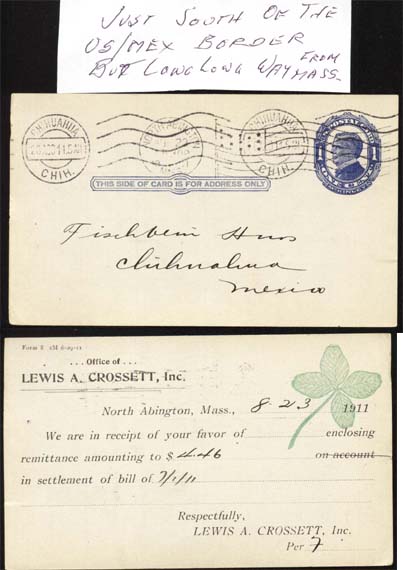 JUST SOUTH OF THE
US/MEX BORDER
BUT LONG LONG WAY FROM MASS.
CHIHUAHUA
CHIH.
CHIHUAHUA
CHIH.
1 1
THIS SIDE OF CARD IS FOR ADDRESS ONLY
Fischbein Hnos
Chihuahua
Mexico
... Office of ...
LEWIS A. CROSSETT, Inc.
North Abington, Mass., 8-23 1911
We are in receipt of your favor of enclosing
remittance amounting to $ 4.46 on account
in settlement of bill of 7/1/11
Respectfully,
LEWIS A. CROSSETT, Inc.
Per 7